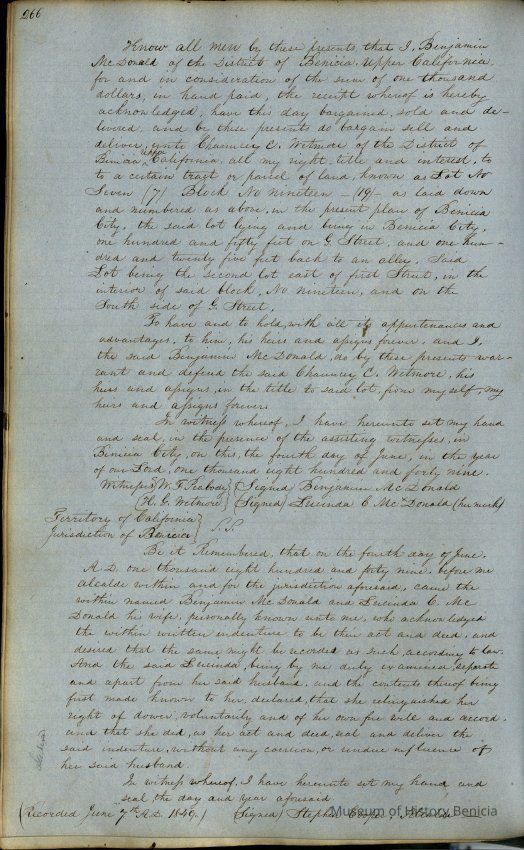 266
Know all men by these presents that I, Benjamin
McDonald of the District of Benicia. Upper California
for and in consideration of the sum of one thousand
dollars, in hand paid, the receipt whereof is hereby
acknowledged, have this day bargained, sold and de-
livered, and by these presents do bargain sell and
deliver, unto Chauncey C. Wetmore of the District of
Benicia Upper California, all my right title and interest, to
to a certain tract or parcel of land, known as Lot No
Seven (7) Block No nineteen -(19)- as laid down
and numbered as above, in the present plan of Benicia
City, the said lot lying and being in Benicia City,
one hundred and fifty feet on G. Street, and one hun-
dred and twenty five feet back to an alley. Said
Lot being the second lot east of first Street, in the
interior of said block, No nineteen, and on the
South side of G. Street.
To have and to hold, with all its appertenances and
advantages, to him, his heirs and assigns forever. and I
the said Benjamin McDonald, do by these presents war-
rant and defend the said Chauncey C. Wetmore, his
heirs and assigns, in the title to said lot, from myself, my
heirs and assigns forever.
In witness whereof, I have hereunto set my hand
and seal, in the presence of the assisting witnesses, in
Benicia City, on this, the fourth day of June, in the year
of our Lord, one thousand eight hundred and forty nine.
Witnesses W. F. Peabody (Signed) Benjamin McDonald
H. G. Wetmore (Signed) Lucinda C McDonald (her mark)
Territory of California
Jurisdiction of Benicia S.S.
Be it Remembered, that on the fourth day of June.
A.D. one thousand eight hundred and forty nine. before me
Alcalde within and for the jurisdiction aforesaid, came the
within named Benjamin McDonald and Lucinda C. Mc
Donald his wife, personally known unto me, who acknowledged
the within written indenture to be their act and deed, and
desired that the same might be recorded as such, according to law.
And the said Lucinda, being by me duly examined, separate
and apart from her said husband. and the contents thereof being
first made known to her, declared, that she relinquished her
right of dower, voluntarily and of her own free will and accord.
and that she did, as her act and deed, seal and deliver the
said indenture, without any coercion, or undue influence of
her said husband.
In witness whereof, I have hereunto set my hand and
seal, the day and year aforesaid
(Recorded June 7th A.D. 1849.) (Signed) Stephen Cooper. Alcalde
Museum of History Benicia